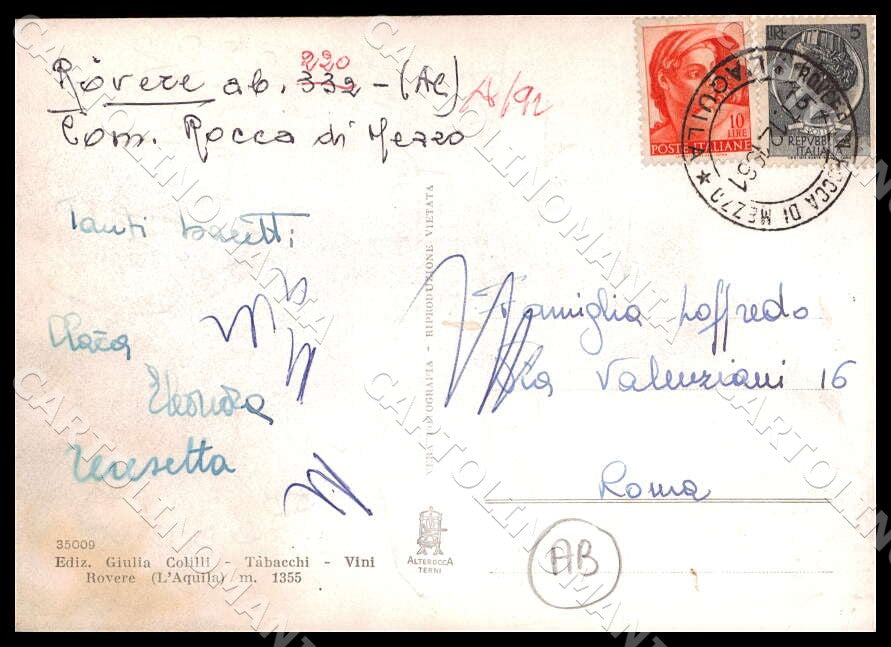 220
Rovere ab. 332 - (AQ) A/92
Com. Rocca di Mezzo
10
LIRE
POSTE ITALIANE
LIRE 5
REPVBBLICA
ITALIANA
ROVERE DI ROCCA DI MEZZO
★ L'AQUILA ★
1961
Tanti saluti
Clara
Eleonora
Teresetta
Famiglia Loffredo
Via Valenziani 16
Roma
AB
VERA FOTOGRAFIA - RIPRODUZIONE VIETATA
35009
Ediz. Giulia Colilli - Tabacchi - Vini
Rovere (L'Aquila) m. 1355
ALTEROCCA
TERNI
CARTOLINOMANIA